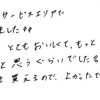 サービスエリアで
ました!!
とてもおいしくて、もっと
と思うぐらいでした
買えるので、よかったで